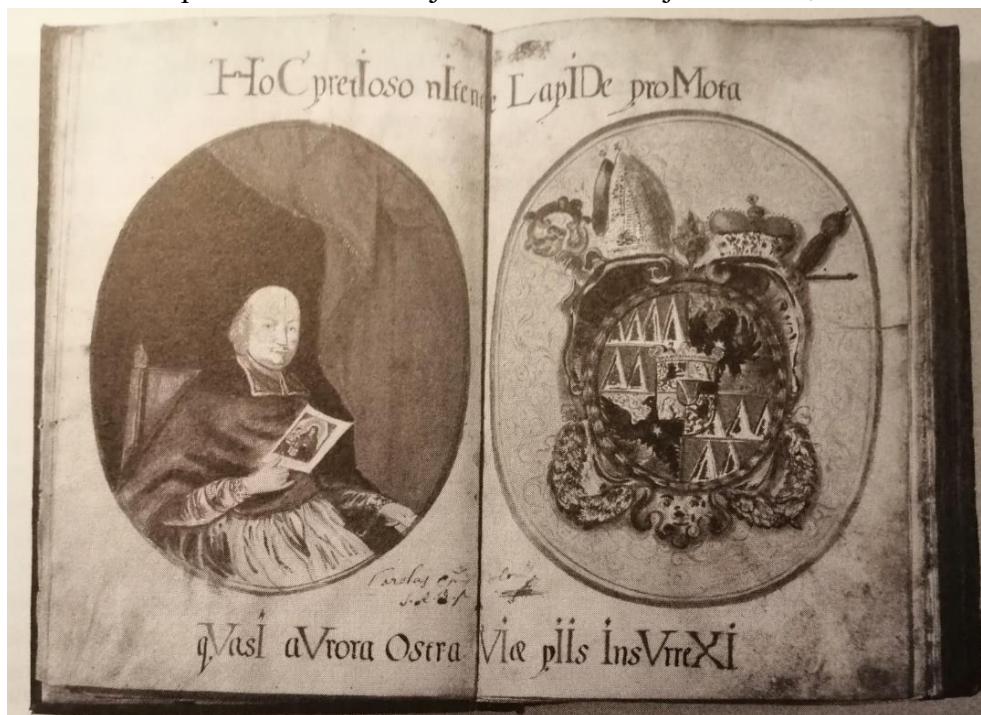 HoC pretIoso nItente LapIDe proMota
Carolus
qVasI aVrora Ostra VIæ pIIs InsVrreXI